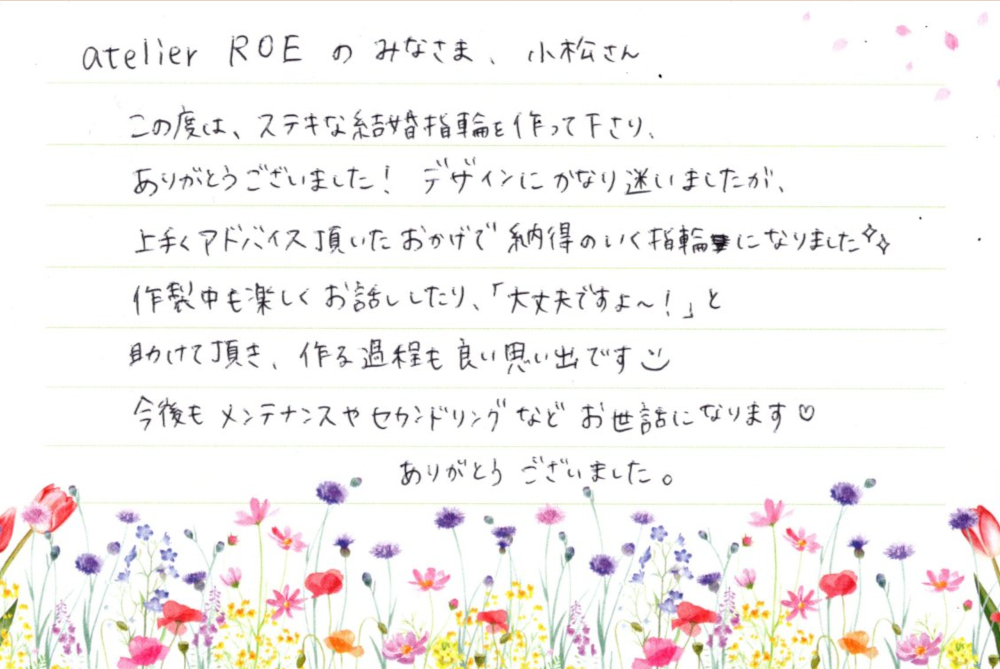 atelier ROE の みなさま、小松さん
この度は、ステキな結婚指輪を作って下さり、
ありがとうございました！ デザインにかなり迷いましたが、
上手くアドバイス頂いたおかげで納得のいく指輪になりました✧✧
作製中も楽しくお話ししたり、「大丈夫ですよ〜！」と
助けて頂き、作る過程も良い思い出です
今後もメンテナンスやセカンドリングなどお世話になります♡
ありがとうございました。